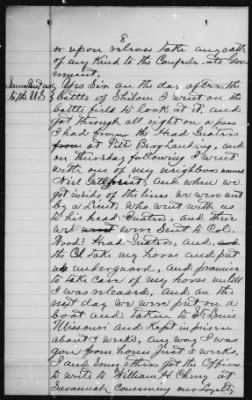 8
or upon or less take any oath
of any kind to the Confederate Gov
ernment.
Yes Sir on the day after the
battle of Shiloh I went on the
battle field to look at it, and
got through all right on a pass
I had from the Head Quarters
from at Pitts Burg Landing, and
on thursday following I went
with one of my neighbors named
and when we
got inside of the lines we were met
by a Lieut, who went with us
to his head Quarters, and there
we were sent to Col.
Woods Head Quarters, and
the Col take my horse and put
me under guard, and promise
to take care of my horse until
I was released, and on the
next day we were put on a
boat and taken to St Louis
Missouri and Kept in prison
about 3 weeks, any way I was
gone from home just 5 weeks.
I and some others got the Officers
to write to William H Cherry at
Savannah Concerning our Loyalty